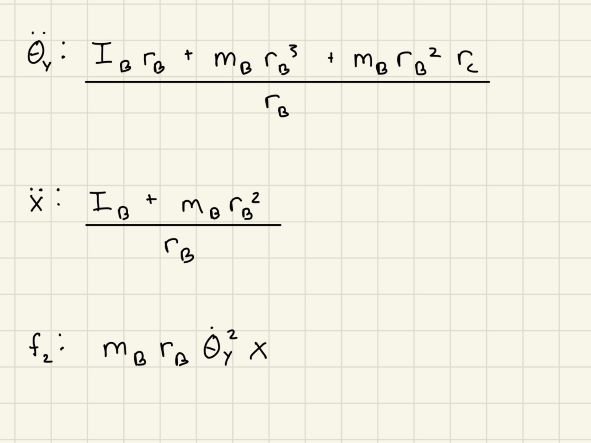 θ̈_Y: (I_B r_B + m_B r_B³ + m_B r_B² r_C) / r_B
ẍ: (I_B + m_B r_B²) / r_B
f₂: m_B r_B θ̇_Y² x